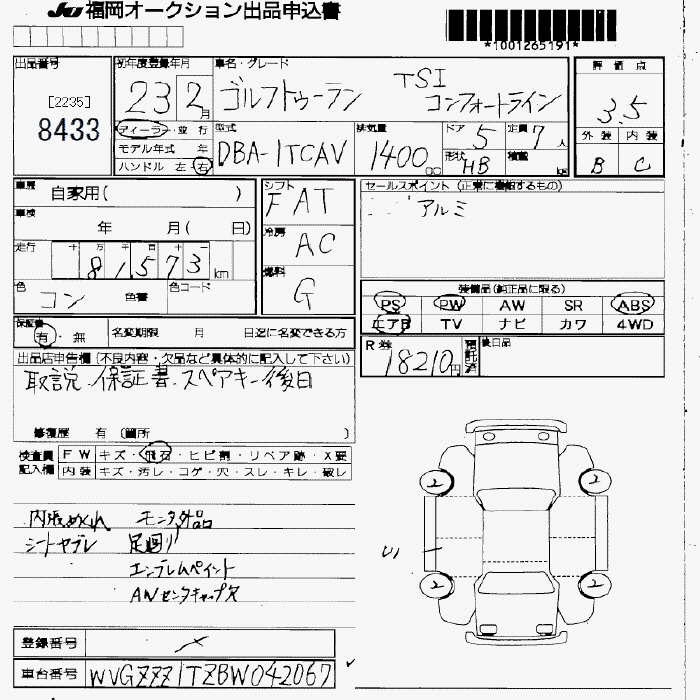 JU 福岡オークション出品申込書
*1001265191*
出品番号
[2235]
8433
初年度登録年月
23 2月
車名・グレード
ゴルフトゥーラン TSI コンフォートライン
評価点
3.5
外装 内装
B C
ディーラー・並行
モデル年式 年
ハンドル 左・右
型式
DBA-1TCAV
排気量
1400cc
ドア 5
形状 HB
定員 7人
積載 kg
車歴 自家用( )
車検 年 月( 日)
走行 十 万 千 百 十 一
81,573 km
色 コン 色替 色コード
シフト FAT
冷房 AC
燃料 G
セールスポイント (正常に機能するもの)
アルミ
装備品(純正品に限る)
PS PW AW SR ABS
エアB TV ナビ カワ 4WD
保証書 有・無 名変期限 月 日迄に名変できる方
R券 18210円 預託済 後日品
出品店申告欄(不良内容・欠品など具体的に記入して下さい)
取説・保証書・スペアキー後日
修復歴 有 (箇所 )
検査員 FW キズ・飛石・ヒビ割・リペア跡・X要
記入欄 内装 キズ・汚レ・コゲ・穴・スレ・キレ・破レ
内張めくれ モニタ外品
シートヤブレ 足廻り
エンブレムペイント
ANセンタキャップ欠
2 2
U1
2 2
登録番号
車台番号 WVGZZZ1TZBW042067